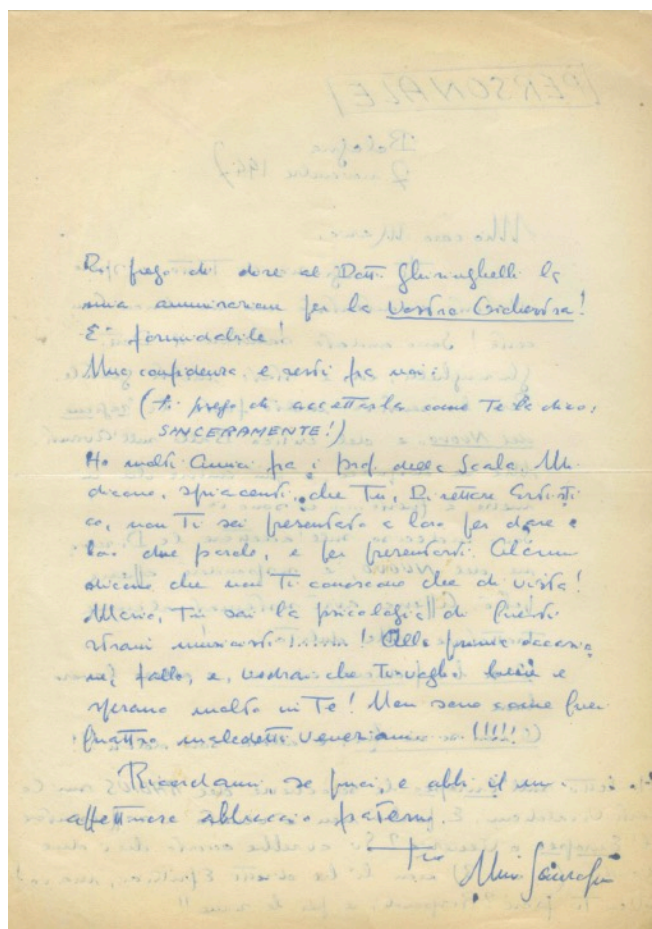 Ti prego di dare al Dott. Ghiringhelli la
mia ammirazione per la Vostra Orchestra!
E' formidabile!
Una confidenza e resti fra noi:
(ti prego di accettarla come Te la dico:
SINCERAMENTE!)
Ho molti Amici fra i prof. della Scala. Mi
dicono, spiacenti, che Tu, Direttore Artisti
co, non Ti sei presentato a loro per dare a
loro due parole, e per presentarti. Alcuni
dicono che non Ti conoscono che di vista!
Mario, Tu sai la psicologia di questi
strani musicisti! Alla prima occasio
ne, fallo, e, vedrai che Ti vogliono bene e
sperano molto in Te! Non sono come quei
quattro maledetti veneziani!!!!!
Ricordami se puoi e abbi il mio
affettuoso abbraccio fraterno.
Tuo